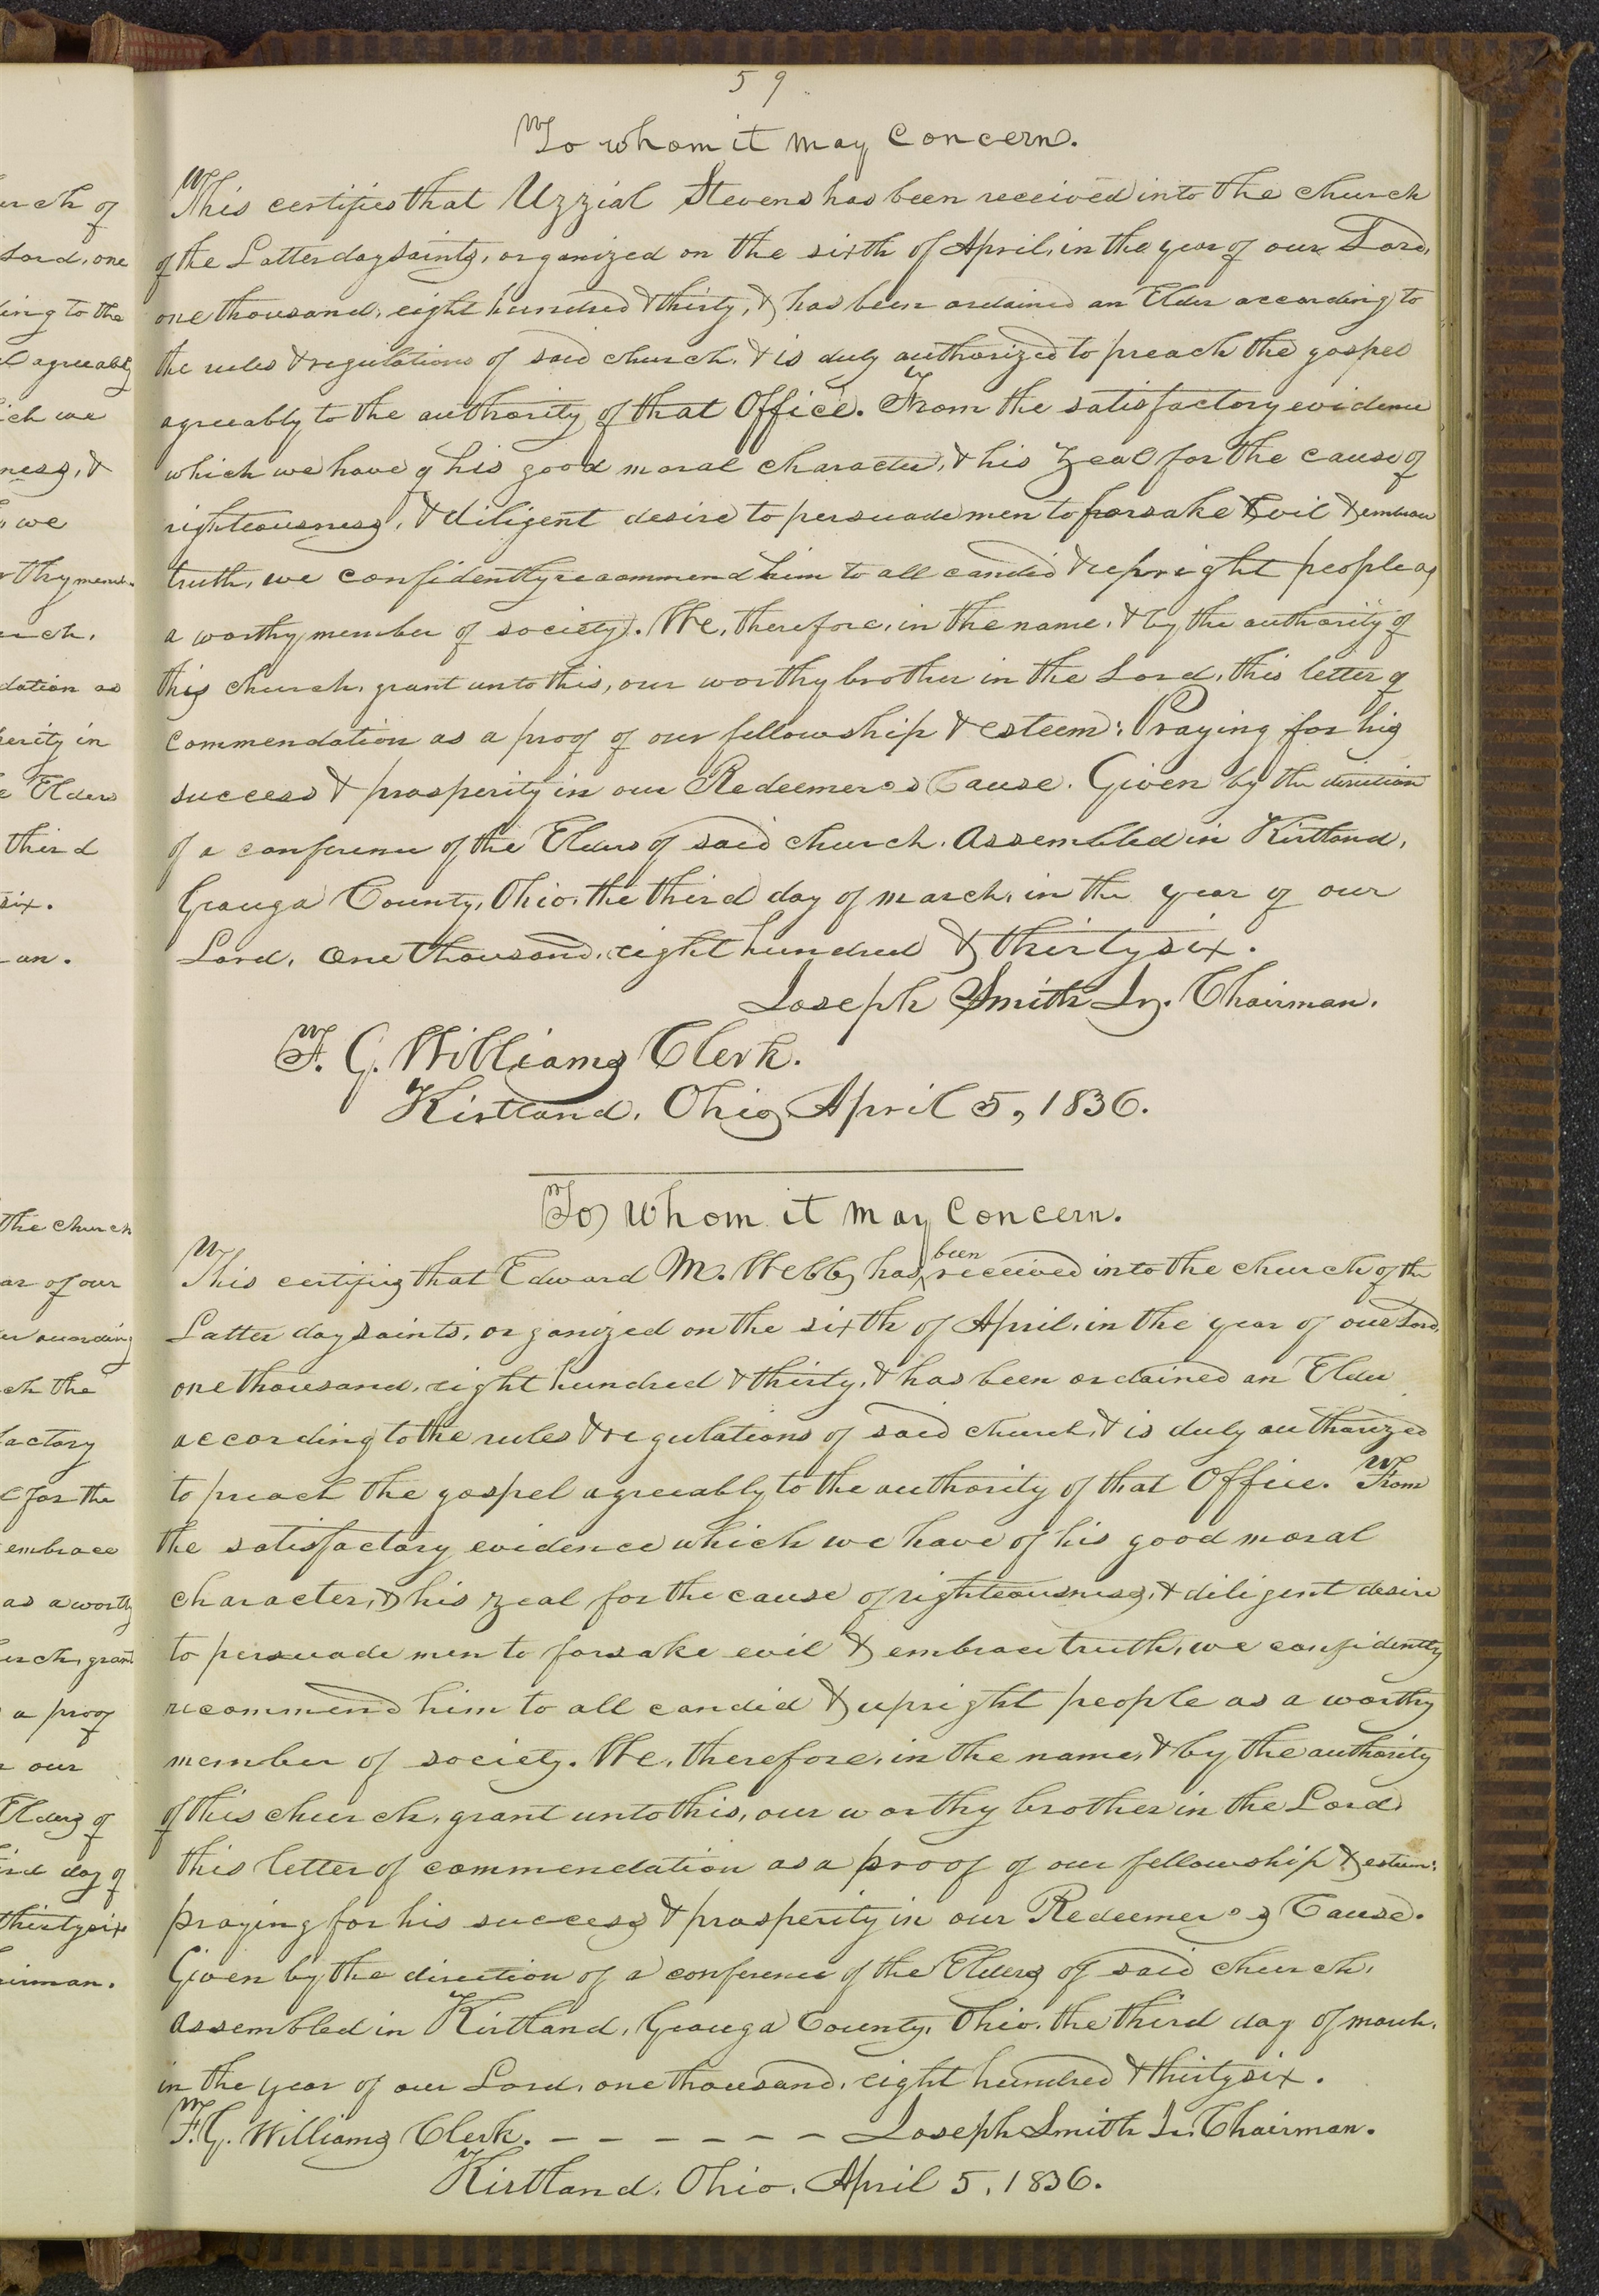 59
To whom it may concern.
This certifies that Uzzial Stevens has been received into the church
of the Latter day saints, organized on the sixth of April, in the year of our Lord,
one thousand, eight hundred & thirty, & has been ordained an Elder according to
the rules & regulations of said church, & is duly authorized to preach the gospel
agreeably to the authority of that Office. From the satisfactory evidence
which we have of his good moral character, & his zeal for the cause of
righteousness, & diligent desire to persuade men to forsake Evil & embrace
truth, we confidently recommend him to all candid & upright people as
a worthy member of society. We, therefore, in the name, & by the authority of
this church, grant unto this, our worthy brother in the Lord, this letter of
commendation as a proof of our fellowship & esteem: Praying for his
success & prosperity in our Redeemer's Cause. Given by the direction
of a conference of the Elders of said church, assembled in Kirtland,
Geauga County, Ohio, the third day of march, in the year of our
Lord, one thousand, eight hundred & thirty six.
Joseph Smith Jr. Chairman.
F. G. Williams Clerk.
Kirtland, Ohio, April 5, 1836.
To whom it may concern.
This certifies that Edward M. Webb, has been received into the church of the
Latter day saints, organized on the sixth of April, in the year of our Lord,
one thousand, eight hundred & thirty, & has been ordained an Elder
according to the rules & regulations of said church, & is duly authorized
to preach the gospel agreeably to the authority of that Office. From
the satisfactory evidence which we have of his good moral
character, & his zeal for the cause of righteousness, & diligent desire
to persuade men to forsake evil & embrace truth, we confidently
recommend him to all candid & upright people as a worthy
member of society. We, therefore, in the name, & by the authority
of this church, grant unto this, our worthy brother in the Lord,
this letter of commendation as a proof of our fellowship & esteem:
praying for his success & prosperity in our Redeemer's Cause.
Given by the direction of a conference of the Elders of said church,
assembled in Kirtland, Geauga County, Ohio, the third day of march,
in the year of our Lord, one thousand, eight hundred & thirty six.
F. G. Williams Clerk. – – – – – – Joseph Smith Jr. Chairman.
Kirtland, Ohio, April 5, 1836.